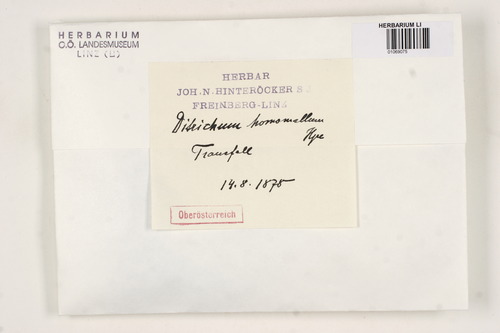 HERBARIUM
O.Ö. LANDESMUSEUM
LINZ (LI)
HERBARIUM LI
01069075
HERBAR
JOH. N. HINTERÖCKER S.J.
FREINBERG-LINZ
Ditrichum homomallum
Hpe
Traunfall
14.8.1875
Oberösterreich